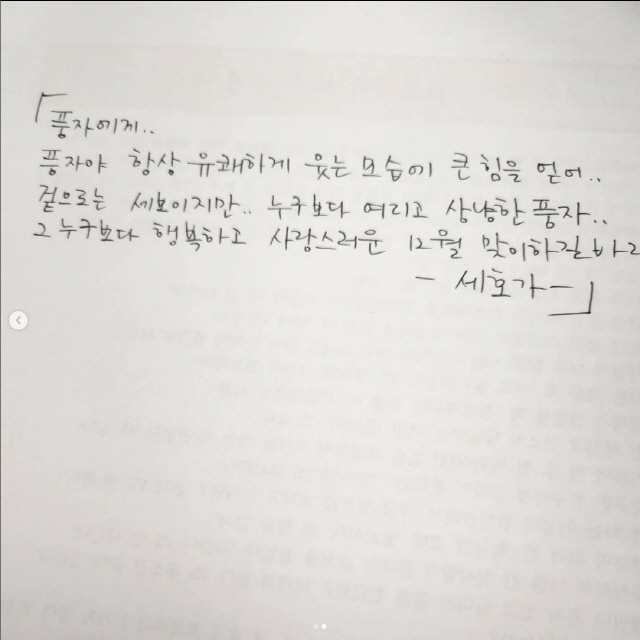 「풍자에게..
풍자야 항상 유쾌하게 웃는 모습에 큰 힘을 얻어..
겉으로는 세보이지만.. 누구보다 여리고 상냥한 풍자..
그 누구보다 행복하고 사랑스러운 12월 맞이하길 바라
- 세호가 -」